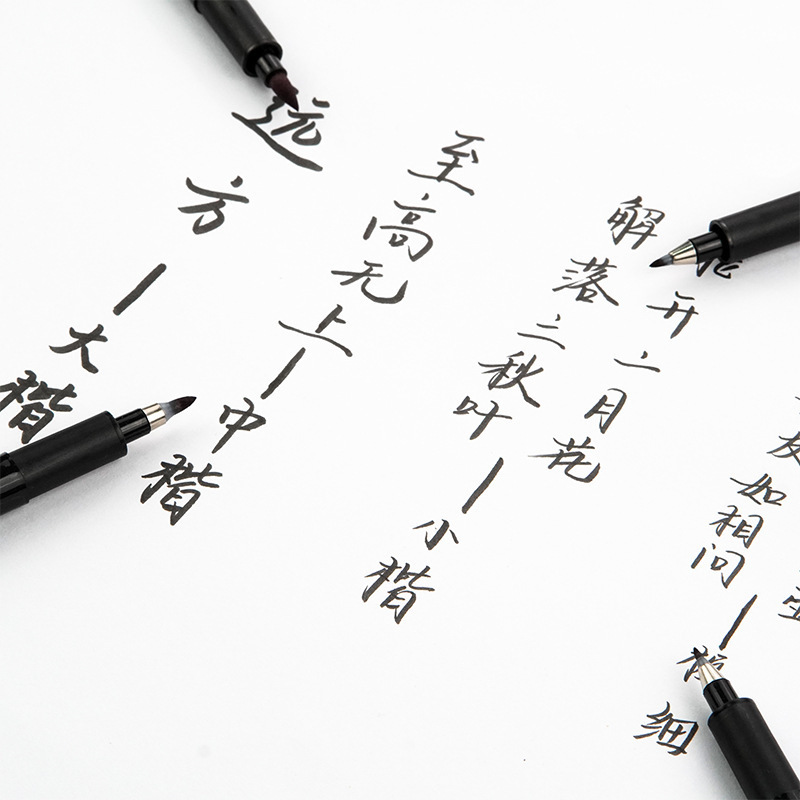 远方—大楷
至高无上—中楷
解落三秋叶—小楷
开二月花
友如相问—
细